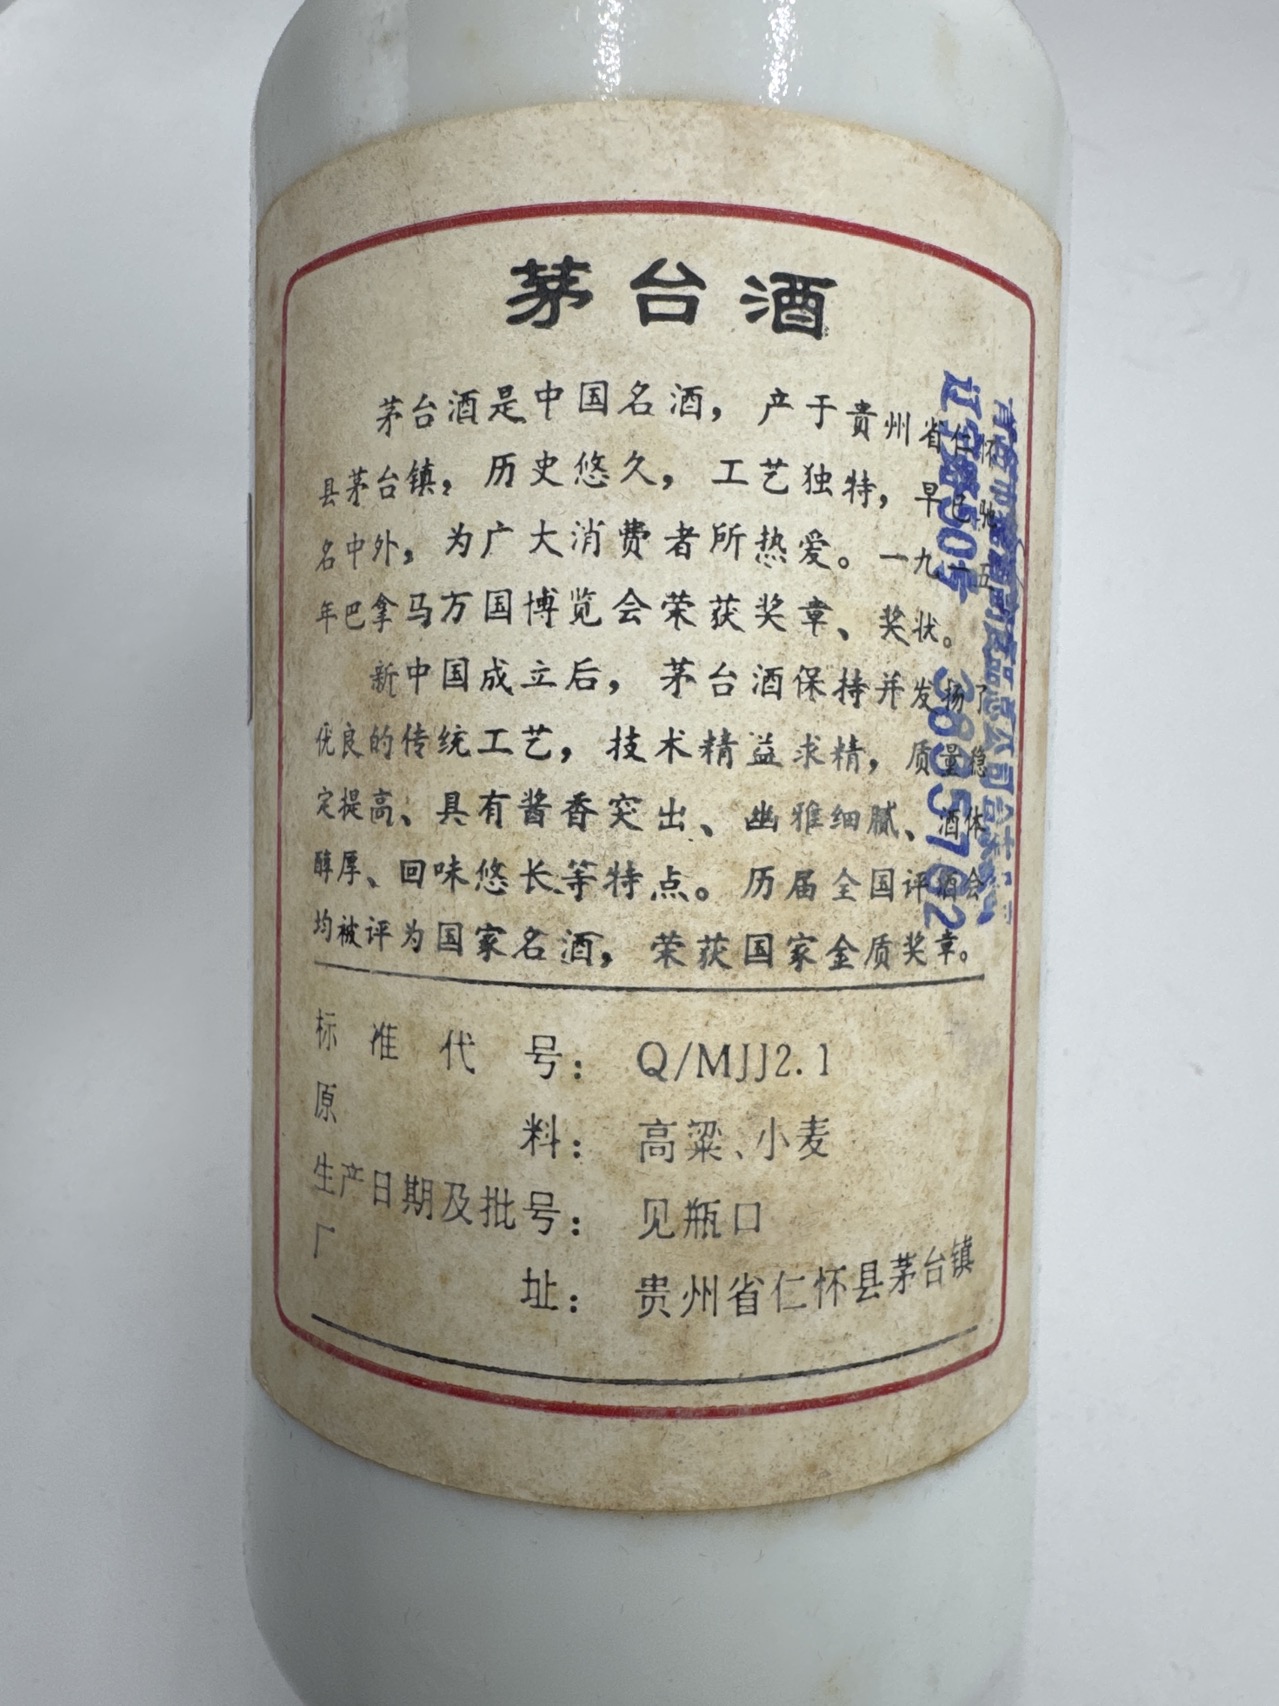 茅台酒
茅台酒是中国名酒，产于贵州省仁怀
县茅台镇，历史悠久，工艺独特，早已驰
名中外，为广大消费者所热爱。一九一五
年巴拿马万国博览会荣获奖章、奖状。
新中国成立后，茅台酒保持并发扬了
优良的传统工艺，技术精益求精，质量稳
定提高、具有酱香突出、幽雅细腻、酒体
醇厚、回味悠长等特点。历届全国评酒会
均被评为国家名酒，荣获国家金质奖章。
标准代号：Q/MJJ2.1
原料：高粱、小麦
生产日期及批号：见瓶口
厂址：贵州省仁怀县茅台镇